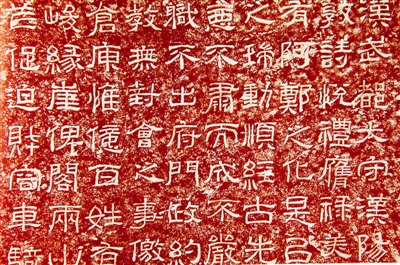 漢武都太守漢陽
敦詩悅禮膺祿美
有阿鄭之化是以
之瑞動順經古先
惡不肅而成不嚴
職不出府門政約
教無對會之事徼
倉庾惟億百姓有
峻緣崖俾閣兩山
笮促迫財容車騎